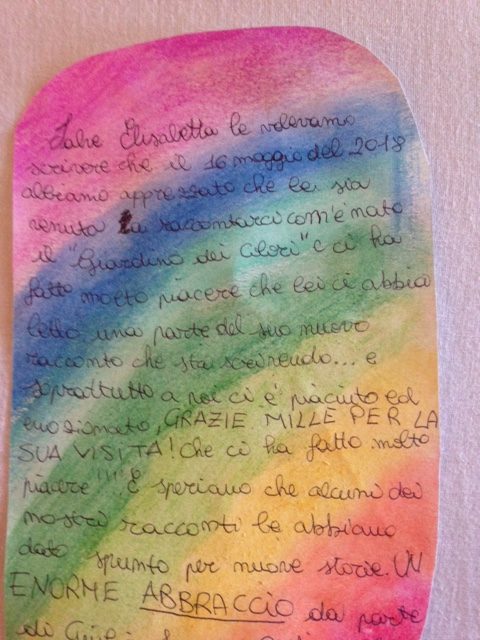 Salve Elisabetta le volevamo
scrivere che il 16 maggio del 2018
abbiamo apprezzato che lei sia
venuta a raccontarci com'è nato
il "Giardino dei Colori" e ci ha
fatto molto piacere che lei ci abbia
letto, una parte del suo nuovo
racconto che sta scrivendo... e
soprattutto a noi ci è piaciuto ed
emozionato, GRAZIE MILLE PER LA
SUA VISITA! Che ci ha fatto molto
piacere !!!! E speriamo che alcuni dei
nostri racconti le abbiano
dato spunto per nuove storie. UN
ENORME ABBRACCIO da parte
di